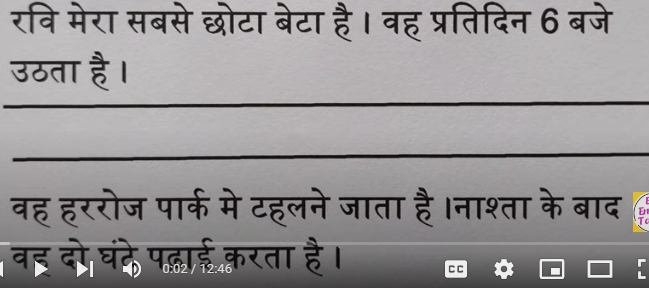 रवि मेरा सबसे छोटा बेटा है। वह प्रतिदिन 6 बजे
उठता है।
वह हररोज पार्क मे टहलने जाता है।नाश्ता के बाद
वह दो घंटे पढाई करता है।
0:02 / 12:46
CC